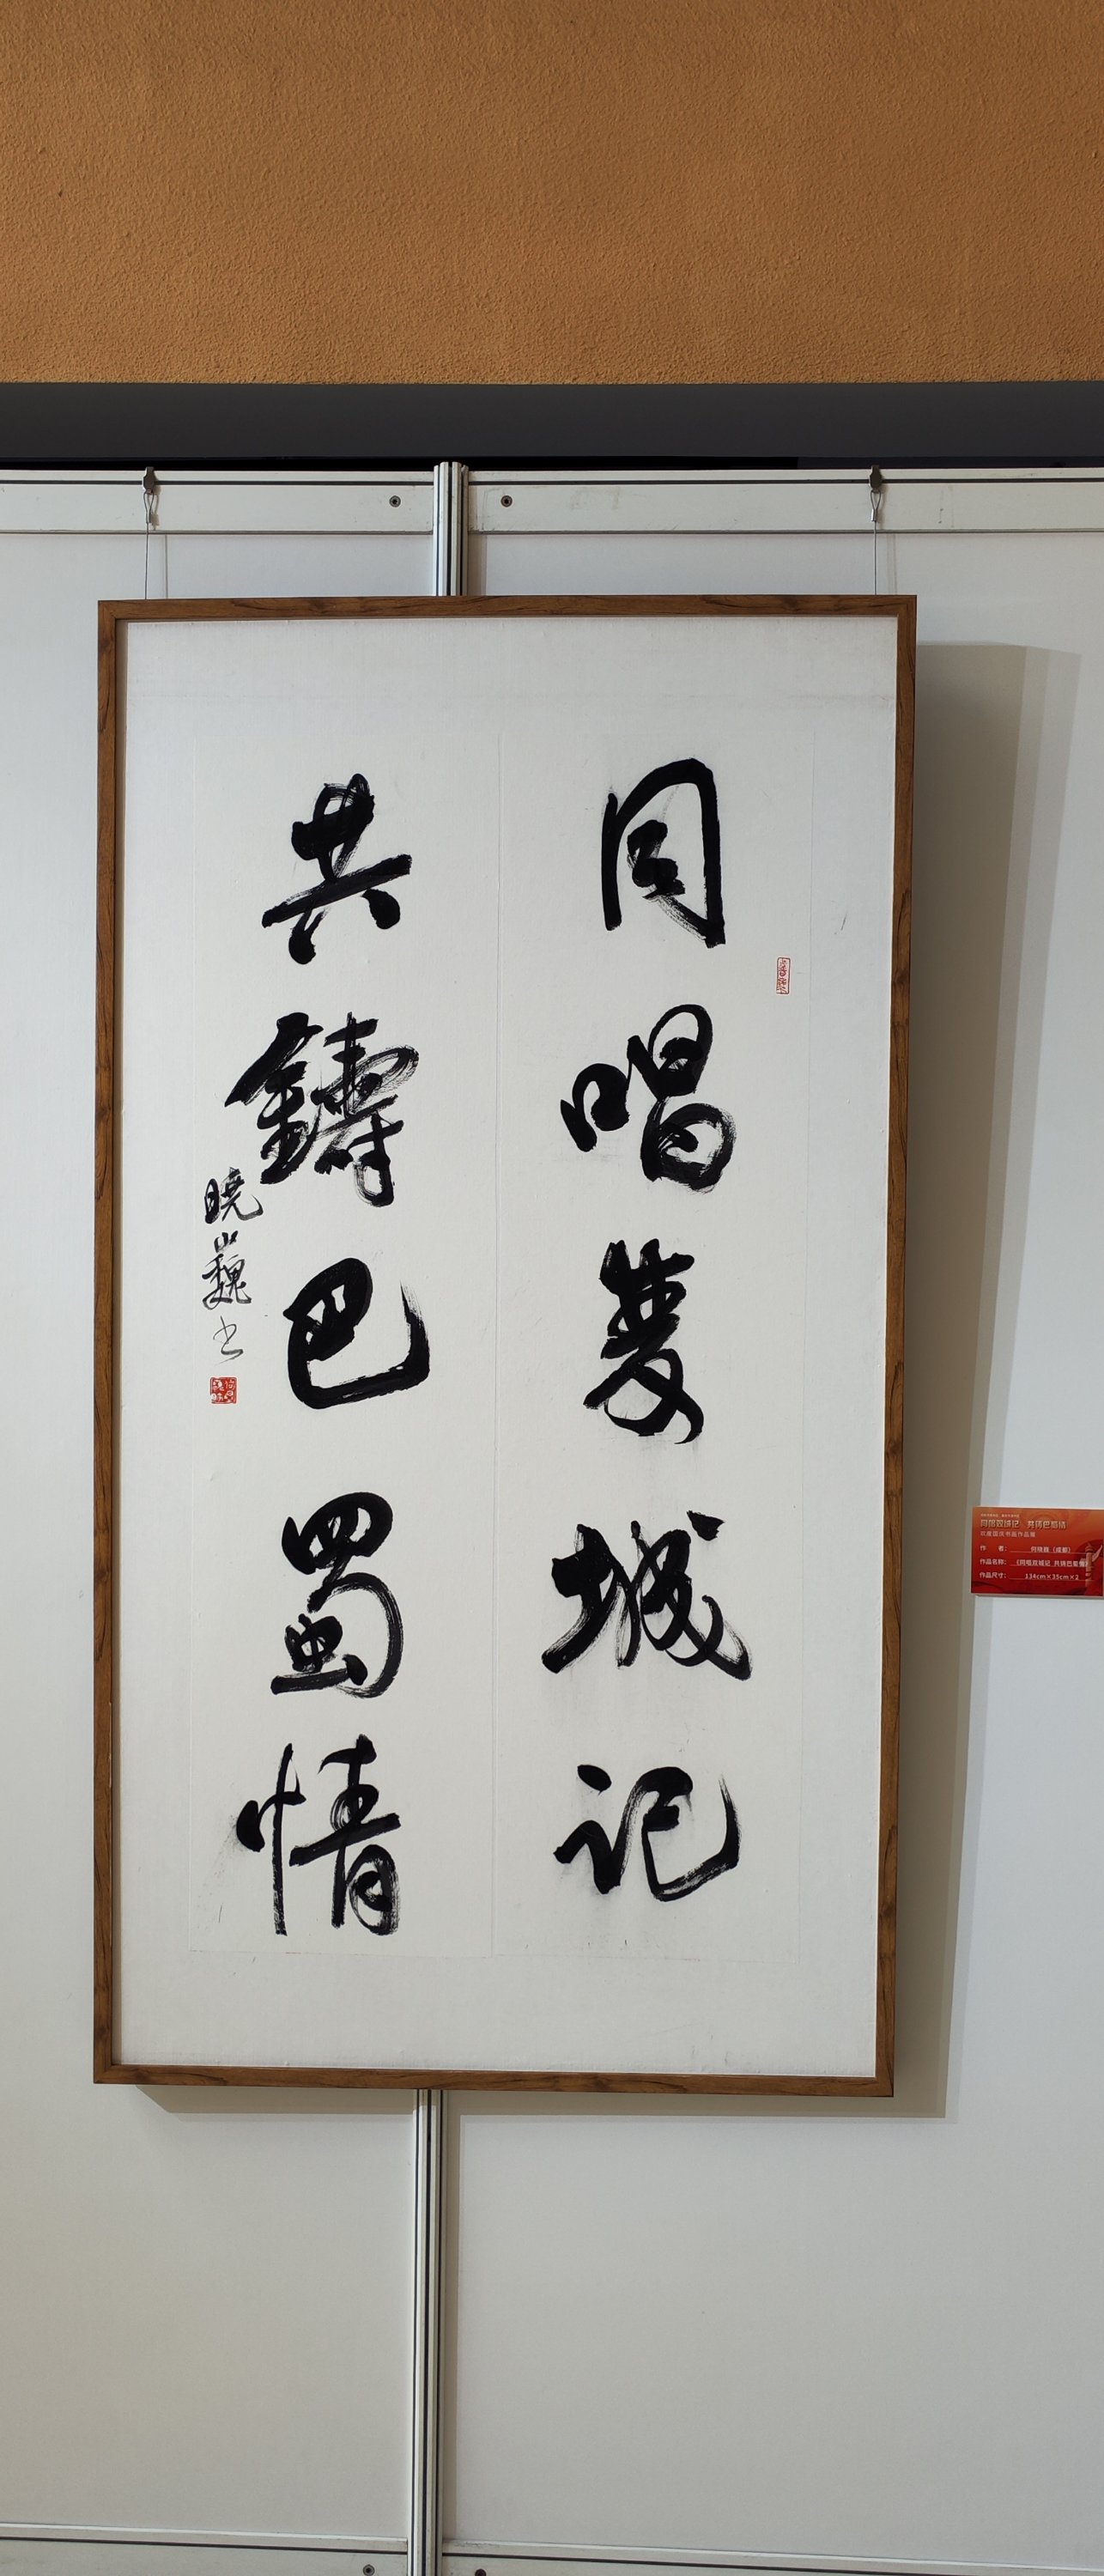 同唱雙城记
共鑄巴蜀情
曉巍书
同唱双城记 共铸巴蜀情
欢度国庆书画作品展
作 者： 何晓巍（成都）
作品名称： 《同唱双城记 共铸巴蜀情》
作品尺寸： 134cm×35cm×2